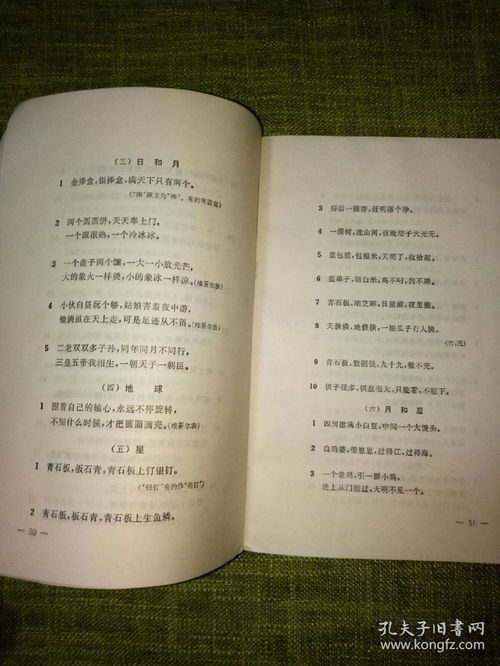 （三）日和月
1 金捧盒，银捧盒，满天下只有两个。
2 两个圆圆饼，天天奉上门，
一个滚滚热，一个冷冰冰。
3 一个盘子两个馕，一大一小放光芒，
大的象火一样烫，小的象冰一样凉。(维吾尔族)
4 小伙白昼玩个够，姑娘害羞夜中游，
他俩虽在天上走，可是足迹从不留。(维吾尔族)
5 二老双双多子孙，同年同月不同行，
三皇五帝我相生，一朝天子一朝臣。
（四）地球
1 围着自己的轴心，永远不停旋转，
不知什么时候，才把圆圈画完。(维吾尔族)
（五）星
1 青石板，板石青，青石板上钉银钉。
2 青石板，板石青，青石板上生鱼鳞。
— 50 —
3 房后一棵杏，到明落个净。
4 一棵树，遮山河，夜晚结子天光无。
5 蓝包袱，包粮米，天明了，收拾起。
6 蓝单子，晒白米，鸡不叼，狗不理。
7 青石板，晒芝麻，日里藏，夜里撒。
8 天倏倏，地倏倏，一把瓜子有人摘。
9 青石板，数铜钱，九十九，数不完。
10 棋子很多，棋盘很大，只能看，不能下。
（六）月和星
1 四周撒满小白豆，中间一个大馒头。
2 白鸡婆，带崽崽，过得江，过得海。
3 一个老鸡，引一群小鸡，
晚上从门前过，天明不见一个。
— 51 —
孔夫子旧书网
www.kongfz.com